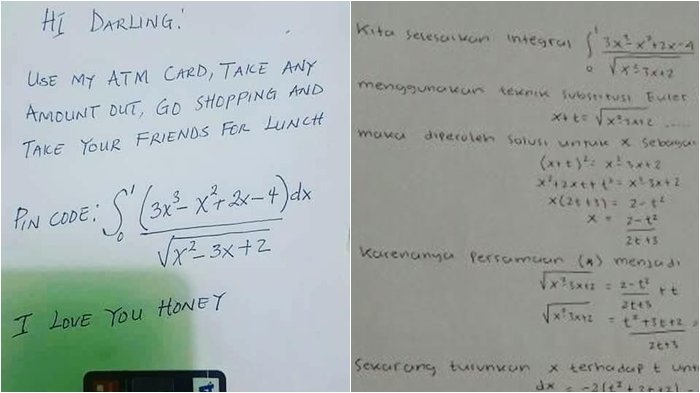 HI DARLING!
USE MY ATM CARD, TAKE ANY
AMOUNT OUT, GO SHOPPING AND
TAKE YOUR FRIENDS FOR LUNCH
PIN CODE: ∫₀¹ (3x³ - x² + 2x - 4) dx / √(x² - 3x + 2)
I LOVE YOU HONEY
Kita selesaikan integral ∫₀¹ 3x³ - x² + 2x - 4 / √(x² - 3x + 2)
menggunakan teknik substitusi Euler
x + t = √(x² - 3x + 2) .....
maka diperoleh solusi untuk x sebagai
(x + t)² = x² - 3x + 2
x² + 2xt + t² = x² - 3x + 2
x(2t + 3) = 2 - t²
x = 2 - t² / 2t + 3
Karenanya Persamaan (*) menjadi
√(x² - 3x + 2) = 2 - t² / 2t + 3 + t
√(x² - 3x + 2) = t² + 3t + 2 / 2t + 3
Sekarang turunkan x terhadap t
dx = -2(t² + 3t + 2)